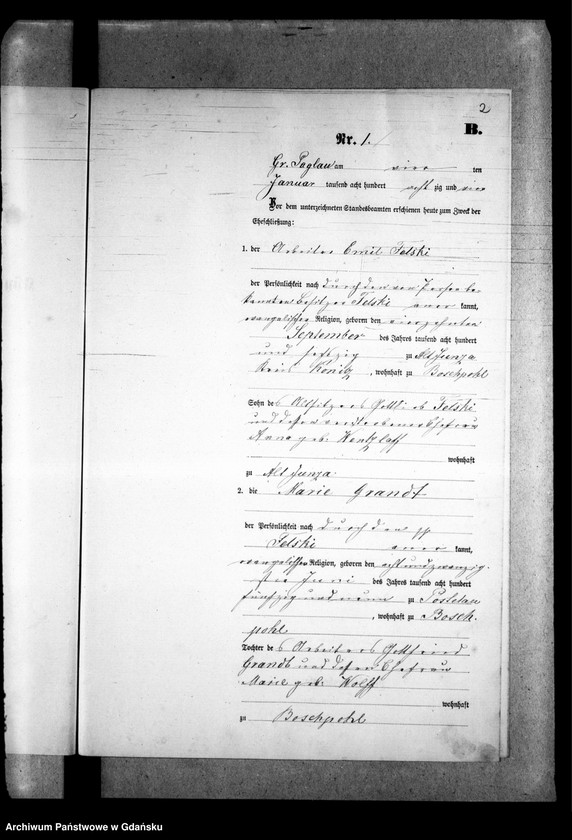 2
B.
Nr. 1.
Gr. Paglau am vier ten
Januar tausend acht hundert acht zig und vier
Vor dem unterzeichneten Standesbeamten erschienen heute zum Zweck der
Eheschließung:
1. der Arbeiter Emil Felski
der Persönlichkeit nach durch den von Person be-
kannten Besitzer Felski aner kannt,
evangelischer Religion, geboren den vierzehnten
September des Jahres tausend acht hundert
und sechzig zu Alt Junza
Kreis Konitz, wohnhaft zu Boschpohl
Sohn des Altsitzers Gottlieb Felski
und dessen verstorbenen Ehefrau
Anna geb. Wentzlaff
wohnhaft
zu Alt Junza.
2. die Marie Grandt
der Persönlichkeit nach durch den pp
Felski aner kannt,
evangelischer Religion, geboren den achtundzwanzig-
sten Juni des Jahres tausend acht hundert
fünfzig und neun zu
, wohnhaft zu Bosch-
pohl
Tochter des Arbeiters Gottfried
Grandt und dessen Ehefrau
Marie geb. Wolff
wohnhaft
zu Boschpohl
Archiwum Państwowe w Gdańsku